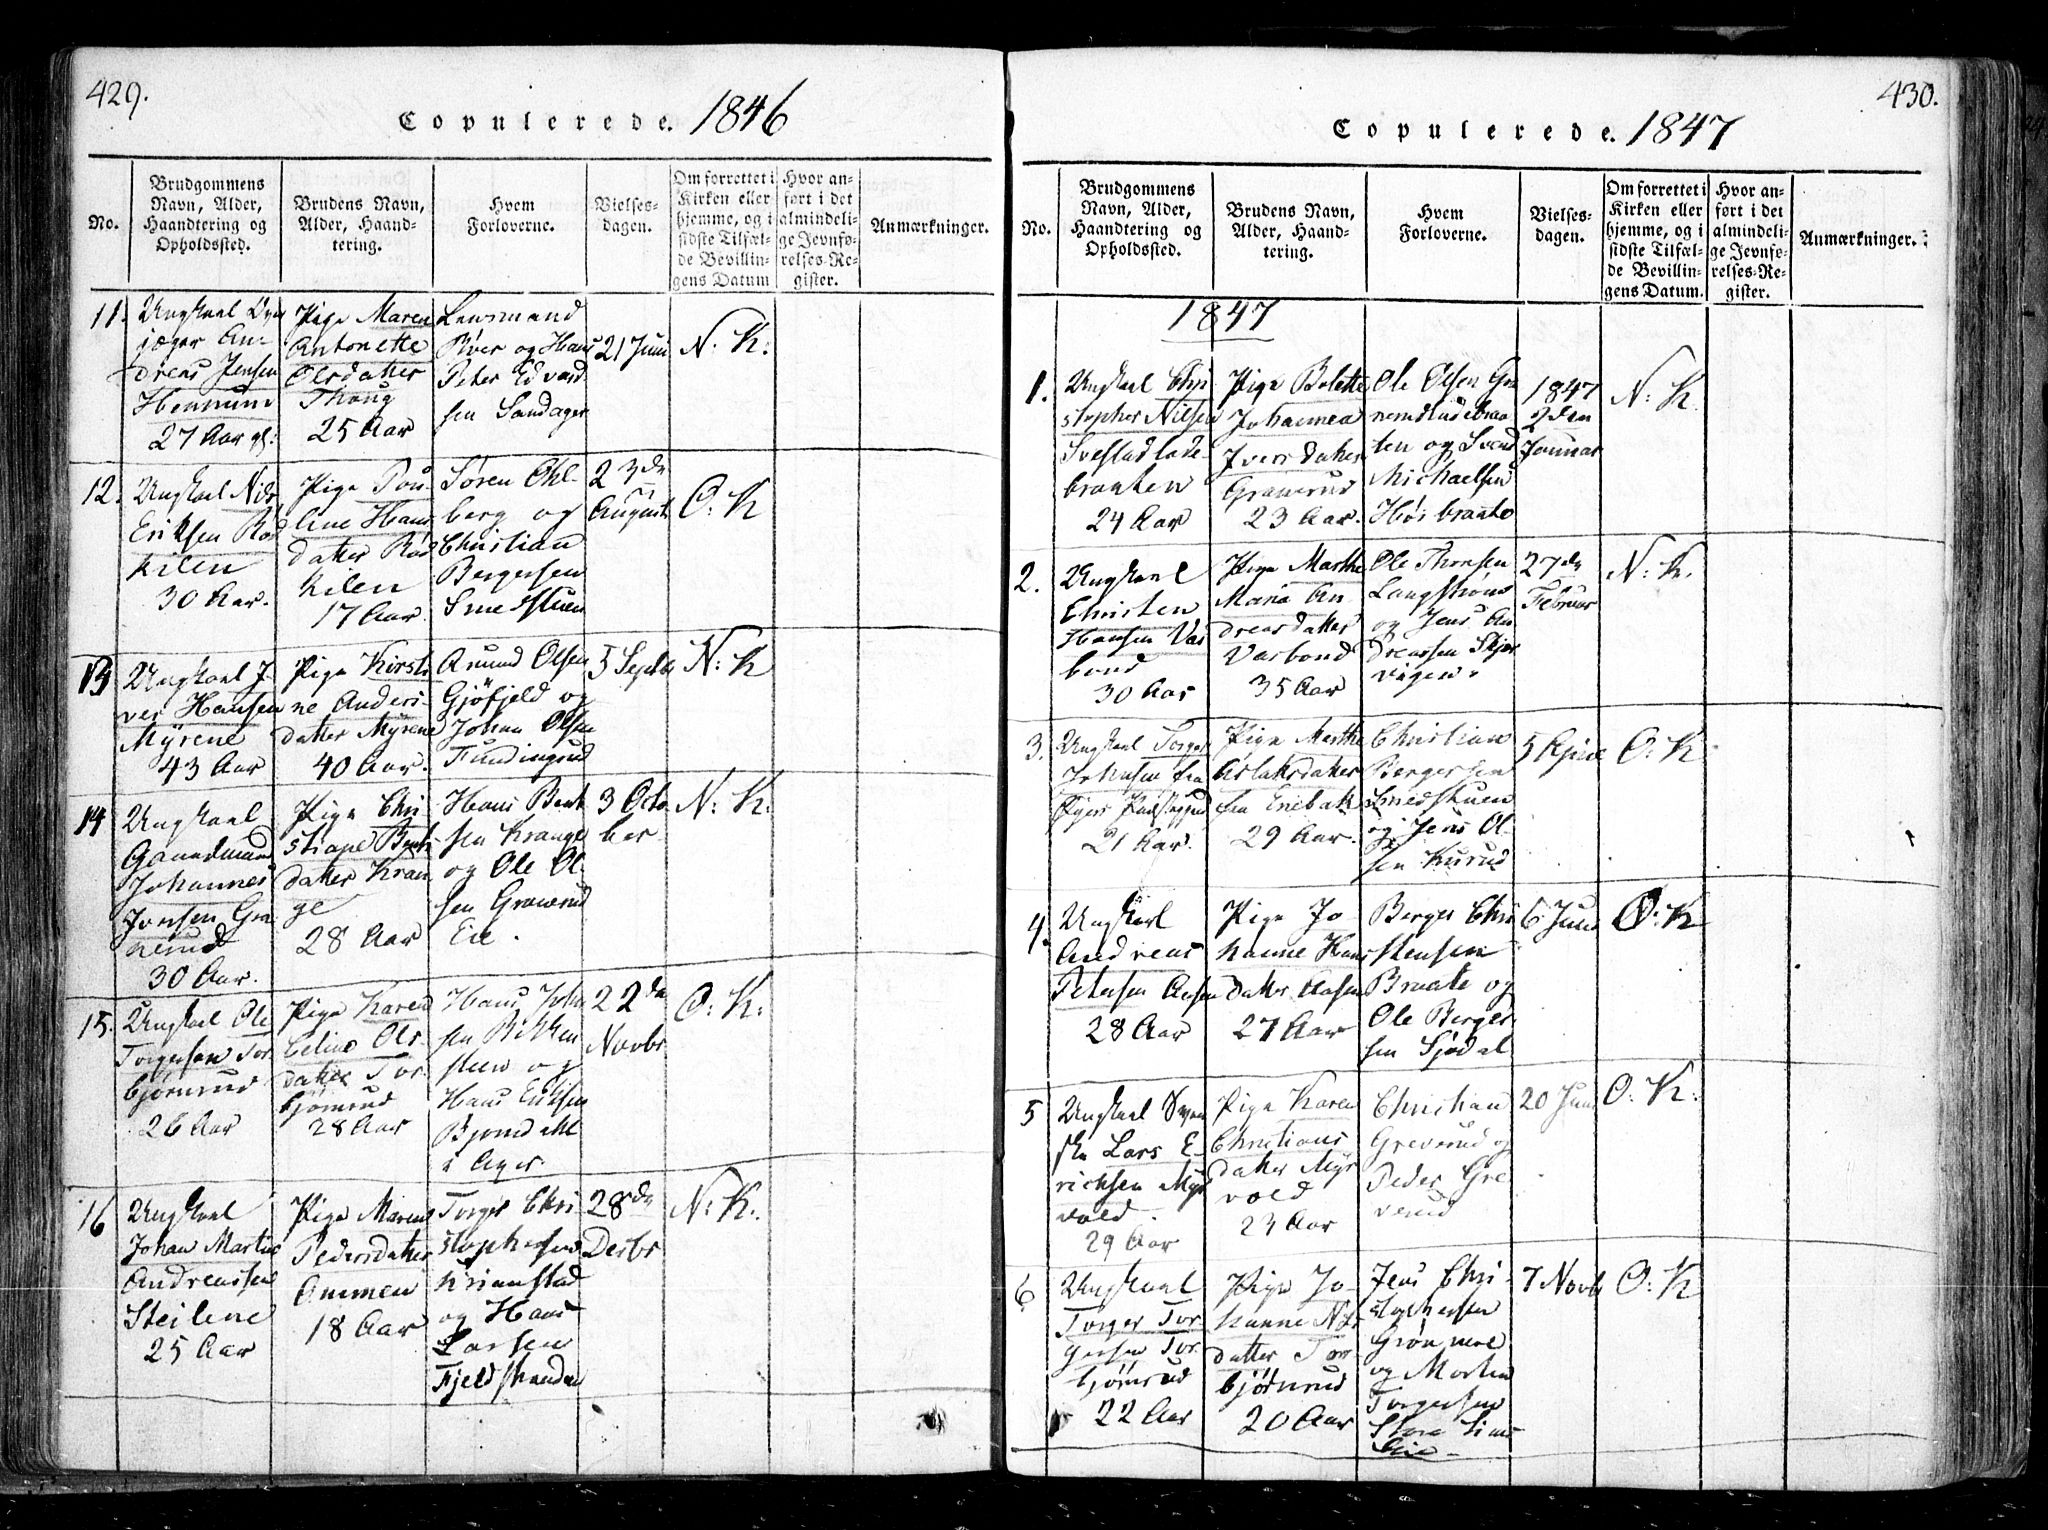 429.
Copulerede. 1846
No.
Brudgommens
Navn, Alder,
Haandtering og
Opholdssted.
Brudens Navn,
Alder, Haand-
tering.
Hvem
Forloverne.
Vielses-
dagen.
Om forrettet i
Kirken eller
hjemme, og i
sidste Tilfæl-
de Bevillin-
gens Datum
Hvor an-
ført i det
almindeli-
ge Jevnfø-
relses-Re-
gister.
Anmærkninger.
11.
Ungkarl
jæger An-
dreas Jensen
Hennum
27 Aar gl:
Pige Maren
Antonette
Olsdatter
Thong
25 Aar
Lensmand
River og Hans
Peter Edvard
sen Sandager
21 Juni
N: K:
12.
Ungkarl Nils
Eriksen Rød
kilen
30 Aar.
Pige Pou-
line Hans
datter Rød
kilen
17 Aar.
Søren Ohl-
berg og
Christian
Bergersen
Smedstuen
23de
August
O: K
13
Ungkarl I-
ver Hansen
Myrene
43 Aar
Pige Kirsti
ne Anders-
datter Myrene
40 Aar.
Amund Olsen
Gjøfjeld og
Johan Olsen
Fundingrud
5 Septbr
N: K
14
Ungkarl
Johannes
Jensen Gra
nerud
30 Aar.
Pige Chri
stiane Bents
datter Kran
ge
28 Aar
Hans Bent
sen Krange
og Ole Ol-
sen Granerud
Eie.
3 Octo
ber.
N: K:
15.
Ungkarl Ole
Torgersen Tor
bjørnrud
26 Aar
Pige Karen
Celine Ols-
datter Tor-
bjørnrud
28 Aar
Hans John
sen Bikken
steen og
Hans Eriksen
Bjørndahl
i Ager.
22de
Novbr
O: K:
16
Ungkarl
Johan Martin
Andreassen
Steilene
25 Aar
Pige Maren
Pedersdatter
Ommen
18 Aar
Torger Chri-
stophersen
Krianstad
og Hans
Larsen
Fjeldstranden
28de
Decbr
N: K:
430.
Copulerede. 1847
No.
Brudgommens
Navn, Alder,
Haandtering og
Opholdssted.
Brudens Navn,
Alder, Haand-
tering.
Hvem
Forloverne.
Vielses-
dagen.
Om forrettet i
Kirken eller
hjemme, og i
sidste Tilfæl-
de Bevillin-
gens Datum.
Hvor an-
ført i det
almindeli-
ge Jevnfø-
relses-Re-
gister.
Anmærkninger.
1847
1.
Ungkarl Chri
stopher Nilsen
Svestadlade-
braaten
24 Aar
Pige Bolette
Johannea
Ivers datter
Granerud
23 Aar.
Ole Olsen Gra
nerudladebraa
ten og Svend
Michaelsen
Høibraate
1847
2den
Januar
N: K.
2.
Ungkarl
Christen
Hansen Vas
bond
30 Aar
Pige Marthe
Maria An
dreasdatter
Vasbond
35 Aar
Ole Thorsen
Langstrøms
og Jens An
dreassen Skjær
vigen.
27de
Februar
N: K.
3.
Ungkarl Torger
Johnsen fra
21 Aar.
Pige Marthe
Aslaksdatter
fra Enebak
29 Aar.
Christian
Bergersen
Smedstuen
og Jens Ol-
sen Kurud
5 April
O: K
4.
Ungkarl
Andreas
Petersen Aasen
28 Aar
Pige Jo-
hanne Hans
datter Aasen
27 Aar
Berger Chri
stensen
Braate og
Ole Berger
sen Sjødal
6 Juni
O: K
5
Ungkarl Sven
ske Lars E-
richsen Myr
vold.
29 Aar
Pige Karen
Christians
datter Myr
vold
23 Aar
Christian
Greverud og
Peder Gre
verud
20 Juni
O: K:
6
Ungkarl
Torger Tor
gersen Tor-
bjørnrud
22 Aar
Pige Jo-
hanne Nils
datter Tor-
bjørnrud
20 Aar
Jens Chri-
stophersen
Grønmoe
og Morten
Torgersen
Eie-
7 Novbr
O: K